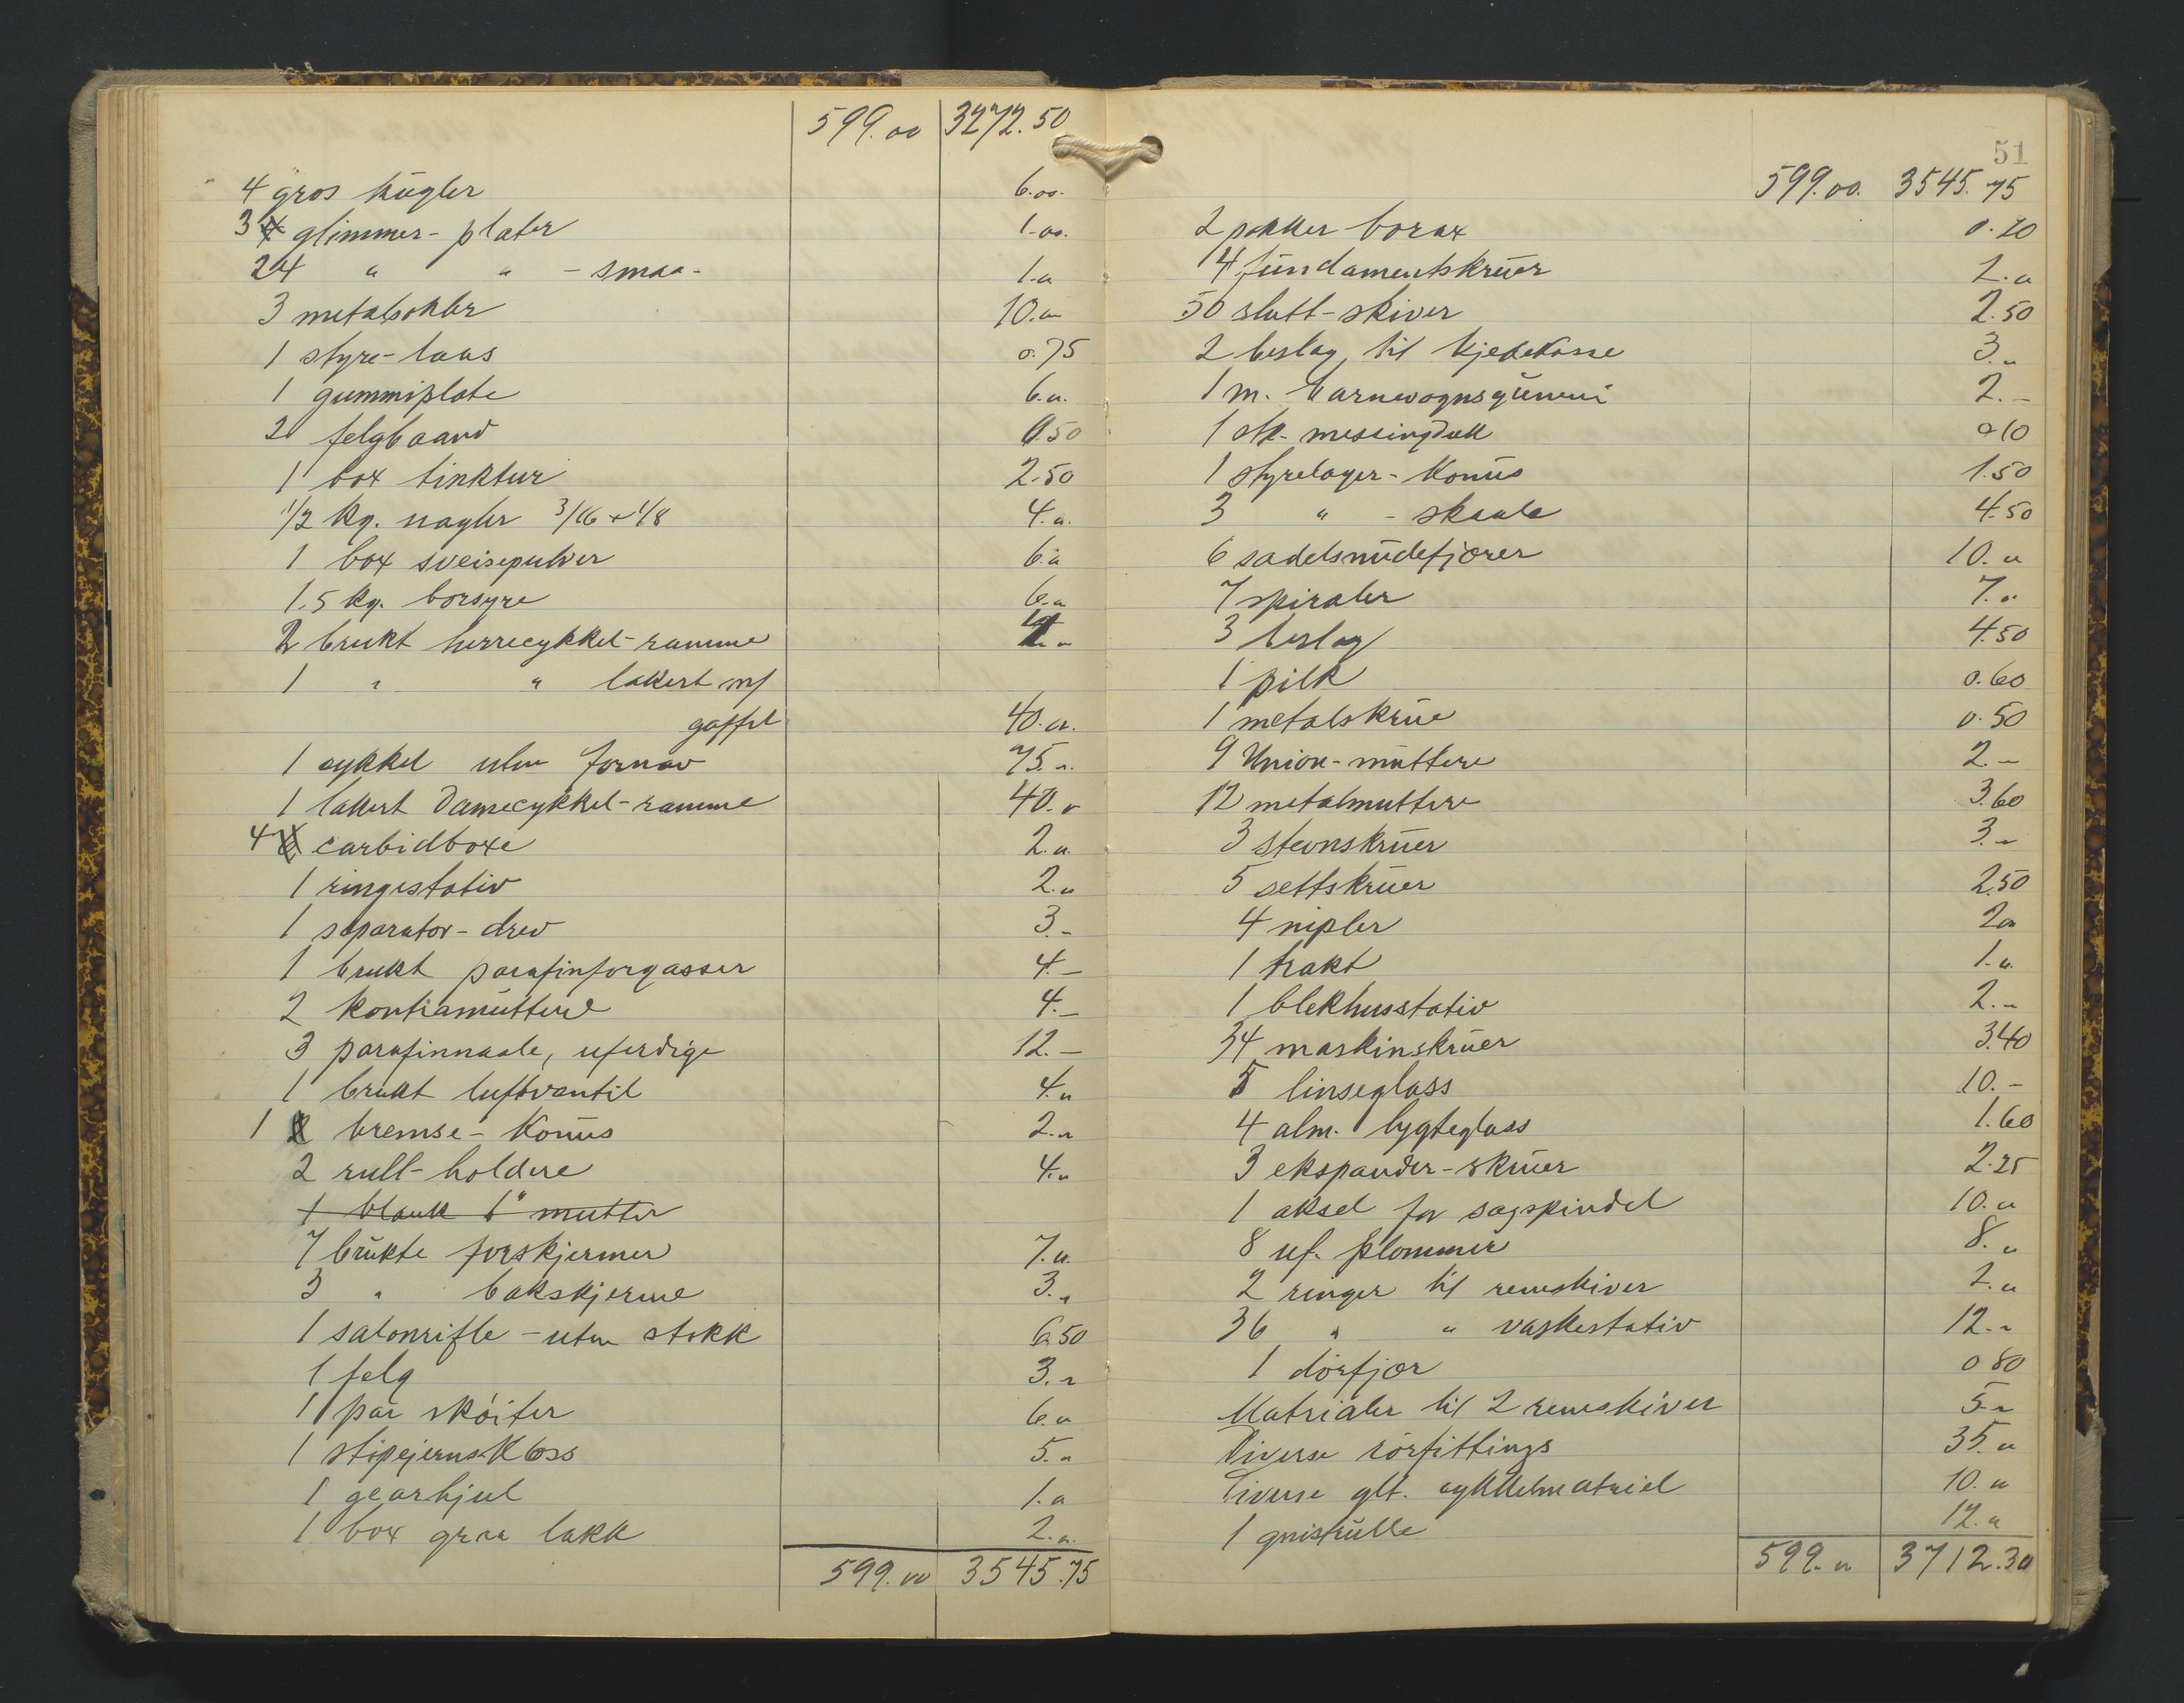 599.00 3272.50
4 gros kugler 6.00.
3 glimmer-plater 1.00.
24 " " - smaa- 1."
3 metalsokler 10."
1 styre-laas 0.75
1 gummiplate 6."
2 felgbaand 0.50
1 box tinktur 2.50
1/2 kg. nagler 3/16 + 1/8 4."
1 box sveisepulver 6."
1.5 kg. borsyre 6."
2 brukt herrecykkel-ramme
1 " " lakert m/
gaffel 40."
1 cykkel uten fornav 75."
1 lakert Damecykkel-ramme 40."
4 carbidboxe 2."
1 ringestativ 2."
1 separator-drev 3.-
1 brukt parafinforgasser 4.-
2 kontramuttere 4.-
3 parafinnaale, uferdige 12.-
1 brukt luftventil 4."
1 bremse-konus 2."
2 rull-holdere 4."
1 blank 1" mutter
7 brukte forskjermer 7."
3 " bakskjerme 3."
1 salonrifle - uten stokk 6.50
1 felg 3."
1 par skøiter 6."
1 støpejerns-Kloss 5."
1 gearhjul 1."
1 box graa lakk 2."
599.00 3545.75
51
599.00. 3545.75
2 pakker borax 0.70
4 fundamentskruer 2."
50 slutt-skiver 2.50
2 beslag til kjedekasse 3."
1 m. barnevognsgummi 2.-
1 stk. messingduk 0.10
1 styrelager-Konus 1.50
3 " - skaale 4.50
6 sadelsnudefjører 10."
7 spiraler 7."
3 beslag 4.50
1 pilk 0.60
1 metalskrue 0.50
9 Union-muttere 2.-
12 metalmuttere 3.60
3 stevnskruer 3.-
5 settskruer 2.50
4 nipler 2"
1 trakt 1."
1 blekhusstativ 2.-
34 maskinskruer 3.40
5 linseglass 10.-
4 alm. lygteglass 1.60
3 ekspander-skruer 2.25
1 aksel for sagspindel 10."
8 uf. plommer 8."
2 ringer til remskiver 2."
36 " " vaskestativ 12."
1 dørfjør 0 80
Matrialer til 2 remskiver 5."
Diverse rørfittings 35."
Diverse glt. cykkelmatriel 10."
1 gnistrulle 12."
599." 3712.30